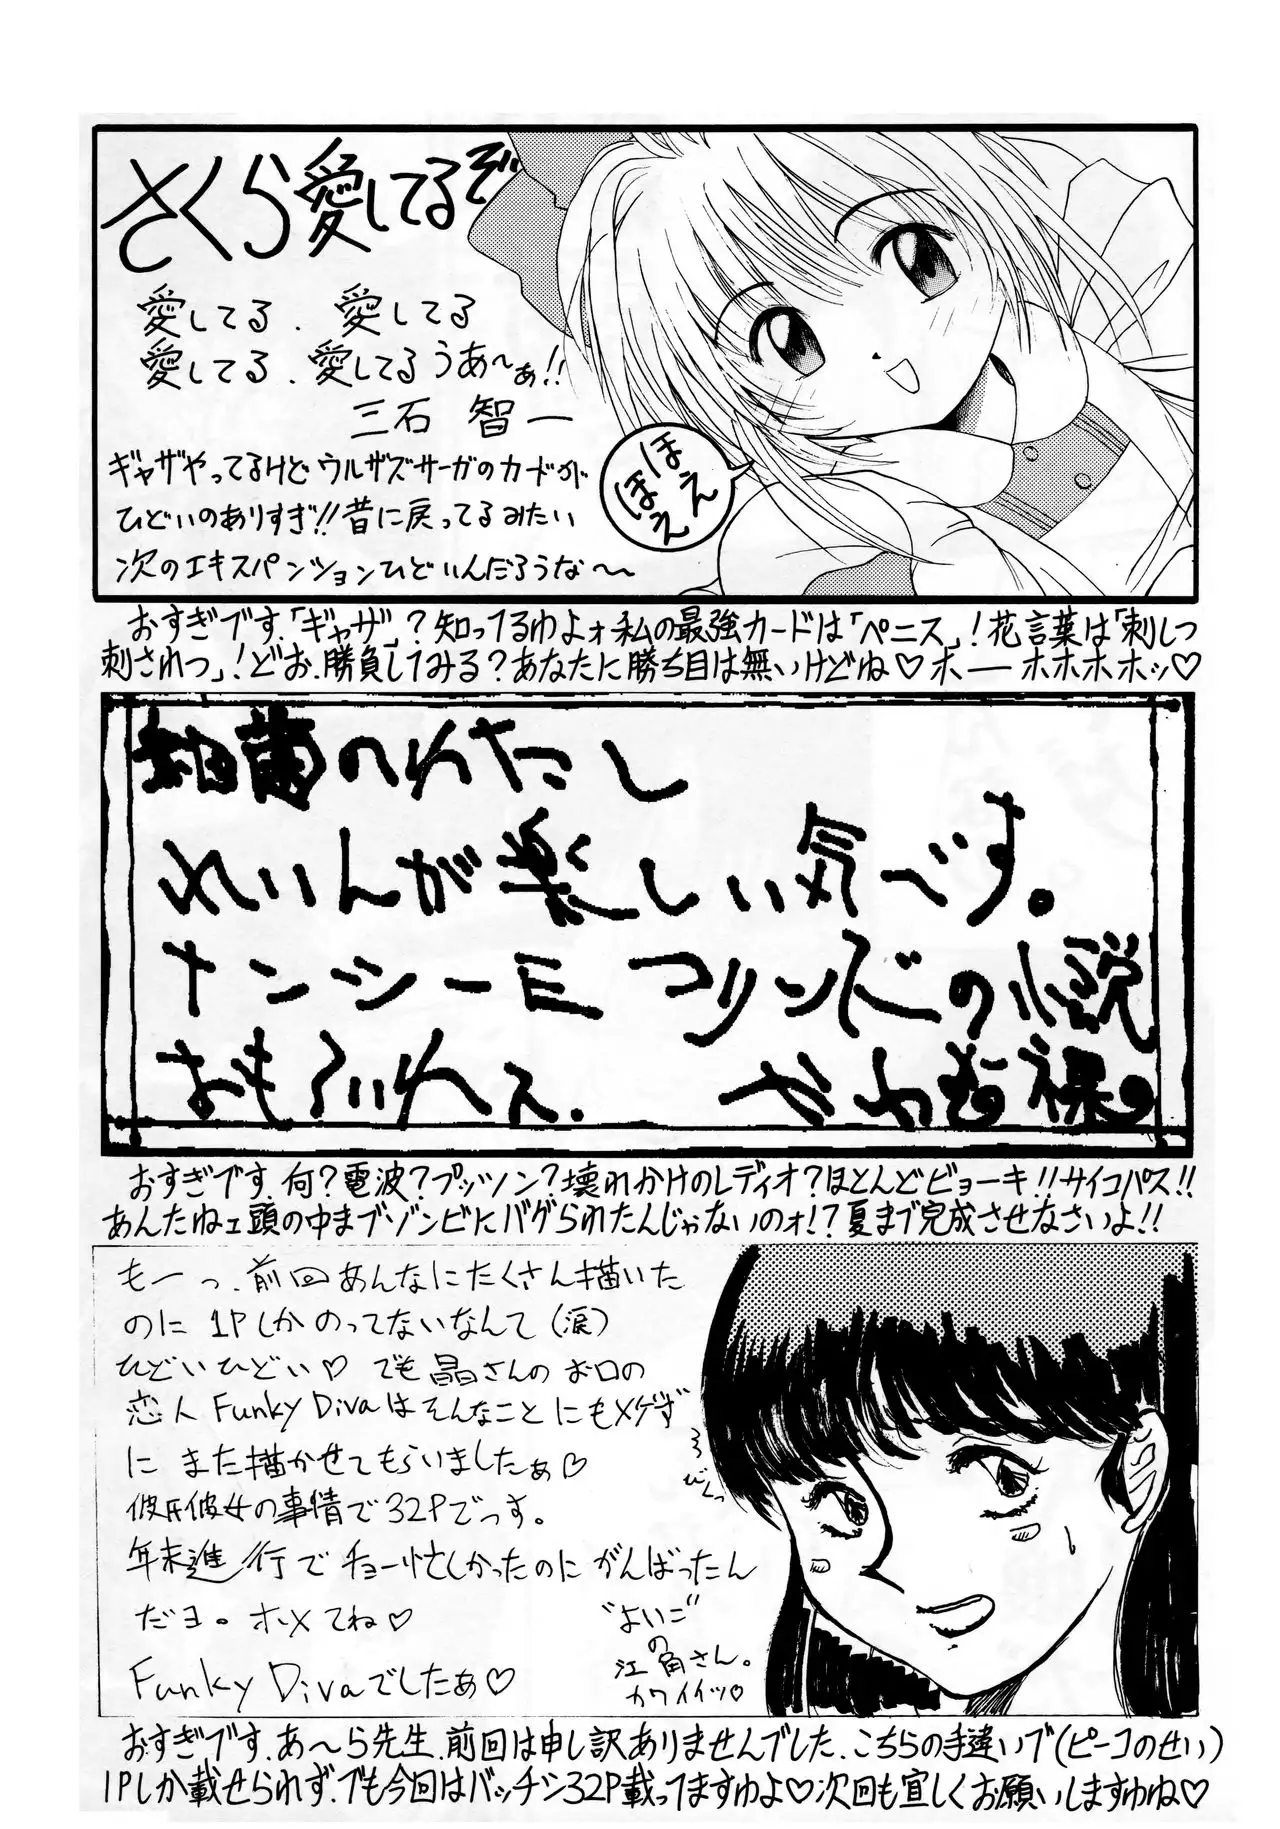 さくら愛してるぞ
愛してる．愛してる
愛してる．愛してるうあ〜ぁ!!
三石 智一
ギャザやってるけどウルザズサーガのカードが
ひどいのありすぎ!!昔に戻ってるみたい
次のエキスパンションひどいんだろうな〜〜
ほえ
ほえ
おすぎです.「ギャザ」?知ってるわよォ私の最強カードは「ペニス」!花言葉は「刺しつ
刺されつ」!どお.勝負してみる?あなたに勝ち目は無いけどね♡ホ――ホホホホッ♡
細菌のわたし
れいんが楽しい気です。
ナンシーミ コリンズの小説
おもろいわぇ.
おすぎです.何?電波?プッツン?壊れかけのレディオ?ほとんどビョーキ!!サイコパス!!
あんたねェ頭の中までゾンビにバゲられたんじゃないのォ!?夏まで完成させなさいよ!!
もーっ.前回あんなにたくさん描いた
のに 1Pしかのってないなんて(涙)
ひどいひどい♡ でも晶さんのお口の
恋人 Funky Divaはそんなことにもメゲず
に また描かせてもらいましたぁ♡
彼氏彼女の事情で32Pでっす。
年末進行でチョー忙しかったのに がんばったん
だヨ。ホメてね♡
Funky Divaでしたぁ♡
びくっ
"よいこ"
の
江角さん。
カワイイッ♡
おすぎです.あ〜ら先生.前回は申し訳ありませんでした.こちらの手違いで(ピーコのせい)
1Pしか載せられず.でも今回はバッチシ32P載ってますわよ♡次回も宜しくお願いしますわね♡